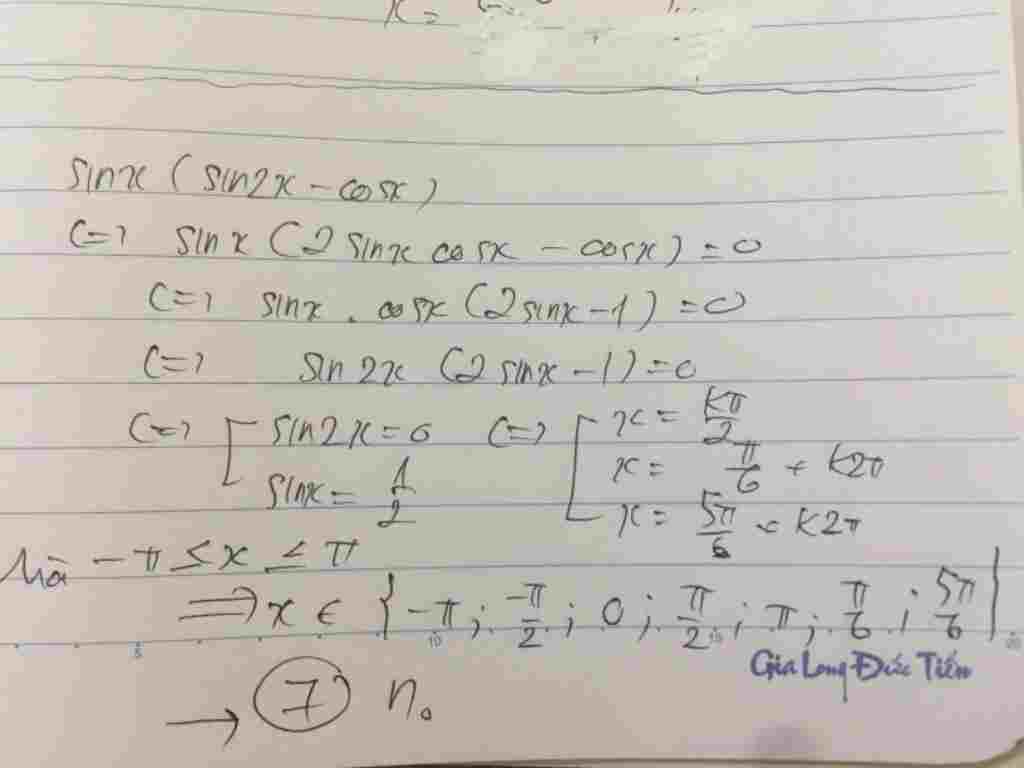 x =
sinx (sin2x - cosx)
<=> sinx (2 sinx cosx - cosx) = 0
<=> sinx . cosx (2sinx - 1) = 0
<=> sin2x (2 sinx - 1) = 0
<=> [ sin2x = 0 <=> [ x = kπ/2
sinx = 1/2 x = π/6 + k2π
x = 5π/6 + k2π
Mà -π ≤ x ≤ π
=> x ∈ {-π; -π/2; 0; π/2; π; π/6; 5π/6}
Gia Long Đức Tiến
→ 7 n.